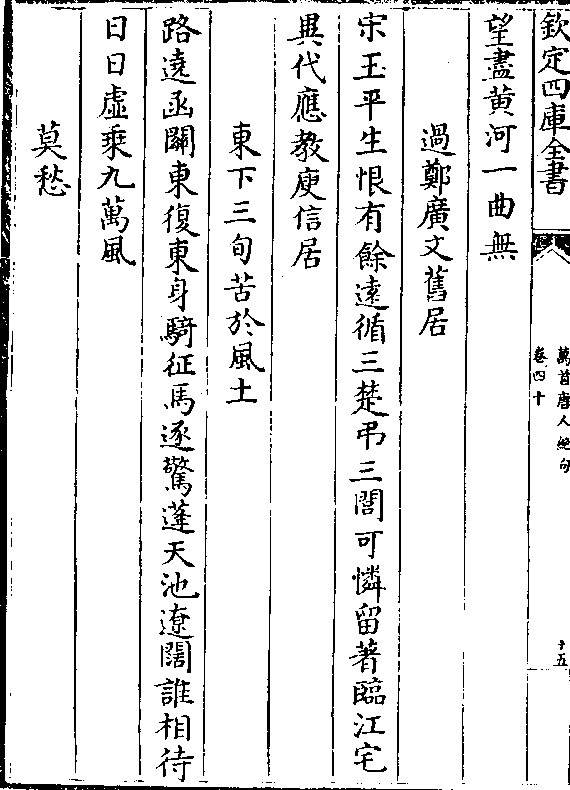 欽定四庫全書
萬首唐人絶句
卷四十
十五
望盡黄河一曲無
過鄭廣文舊居
宋玉平生恨有餘逺循三楚弔三閭可憐留著臨江宅
異代應教庾信居
東下三旬苦於風土
路逺函關東復東身騎征馬逐驚蓬天池遼闊誰相待
日日虛乘九萬風
莫愁